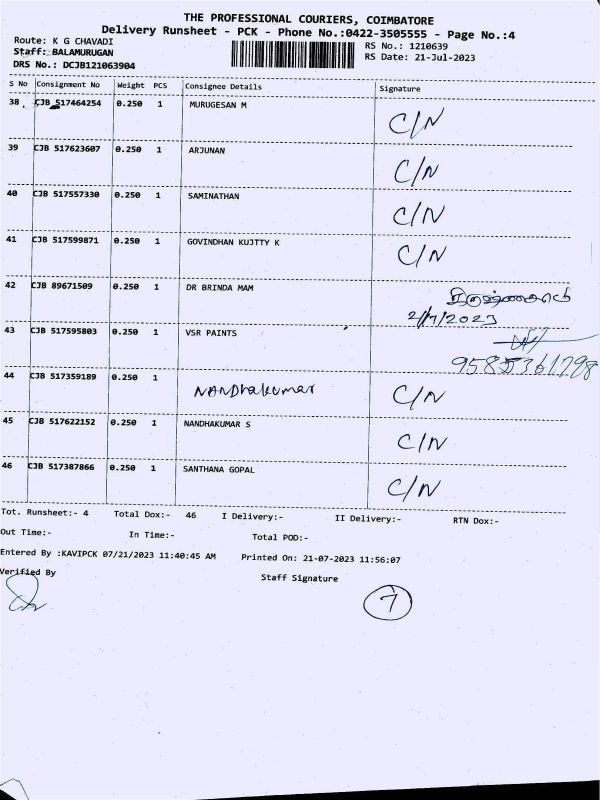 THE PROFESSIONAL COURIERS, COIMBATORE
Delivery Runsheet - PCK - Phone No.:0422-3505555 - Page No.:4
Route: K G CHAVADI RS No.: 1210639
Staff: BALAMURUGAN RS Date: 21-Jul-2023
DRS No.: DCJB121063904
S No Consignment No Weight PCS Consignee Details Signature
38 CJB 517464254 0.250 1 MURUGESAN M C/N
39 CJB 517623607 0.250 1 ARJUNAN C/N
40 CJB 517557330 0.250 1 SAMINATHAN C/N
41 CJB 517599871 0.250 1 GOVINDHAN KUJTTY K C/N
42 CJB 89671509 0.250 1 DR BRINDA MAM
2/7/2023
43 CJB 517595803 0.250 1 VSR PAINTS
44 CJB 517359189 0.250 1 NANDhakumar C/N
45 CJB 517622152 0.250 1 NANDHAKUMAR S C/N
46 CJB 517387866 0.250 1 SANTHANA GOPAL C/N
Tot. Runsheet:- 4 Total Dox:- 46 I Delivery:- II Delivery:- RTN Dox:-
Out Time:- In Time:- Total POD:-
Entered By :KAVIPCK 07/21/2023 11:40:45 AM Printed On: 21-07-2023 11:56:07
Verified By Staff Signature
7